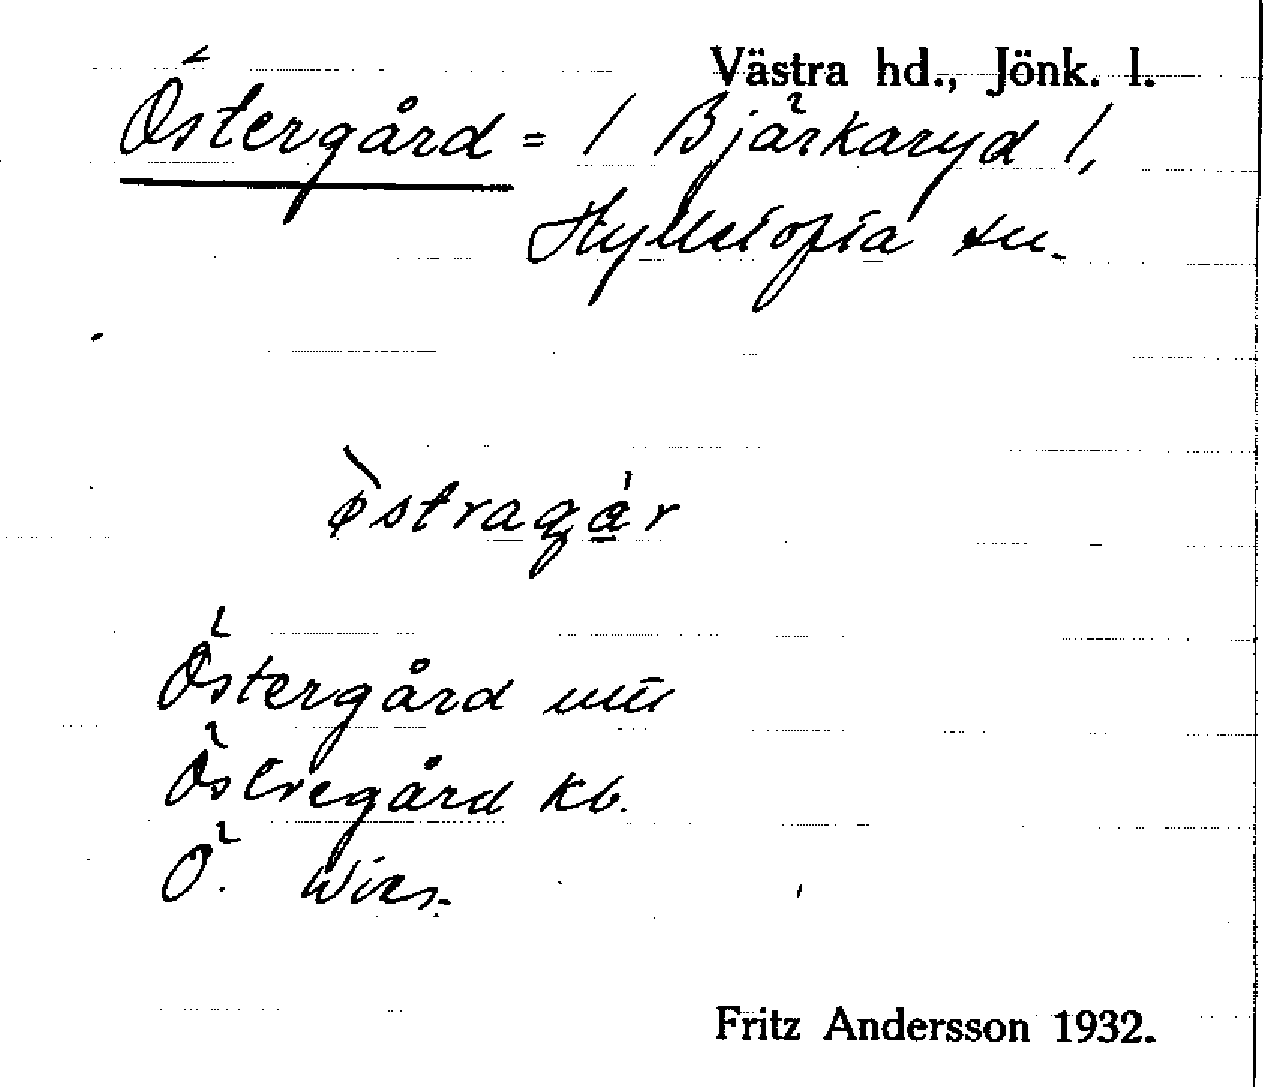 Västra hd., Jönk. l.
Östergård = / Bjärkaryd /,
Hylletofta sn.
östragár
Östergård
Östregård kb.
Ö. Wirs.
Fritz Andersson 1932.